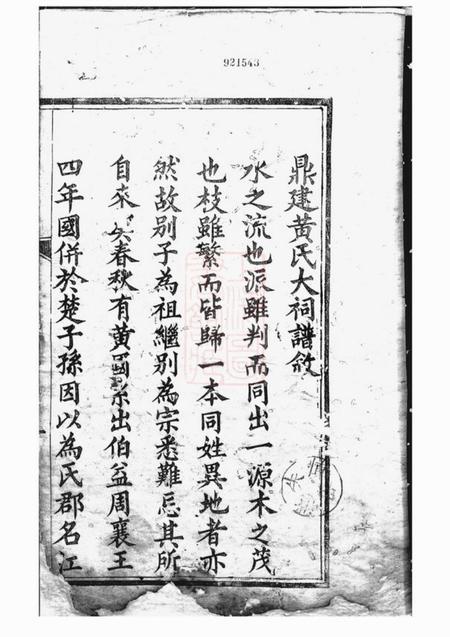 921543
鼎建黄氏大祠譜敘
水之流也派雖判而同出一源木之茂
也枝雖繁而皆歸一本同姓異地者亦
然故别子為祖繼别為宗悉難忘其所
自来春秋有黄國系出伯益周襄王
四年國併於楚子孫因以為氏郡名江